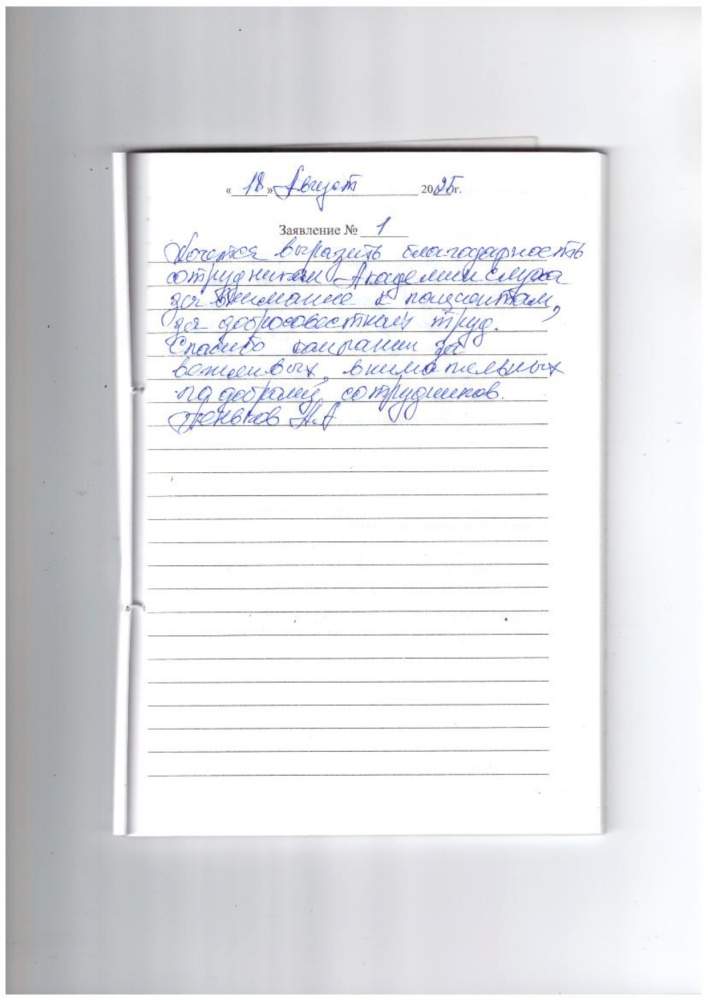 « 18 » Август 2025г.
Заявление № 1
Хочется выразить благодарность
сотрудникам Академии слуха
за внимание к пациентам,
за добросовестный труд.
Спасибо компании за
вежливых, внимательных
сотрудников.
Н.А